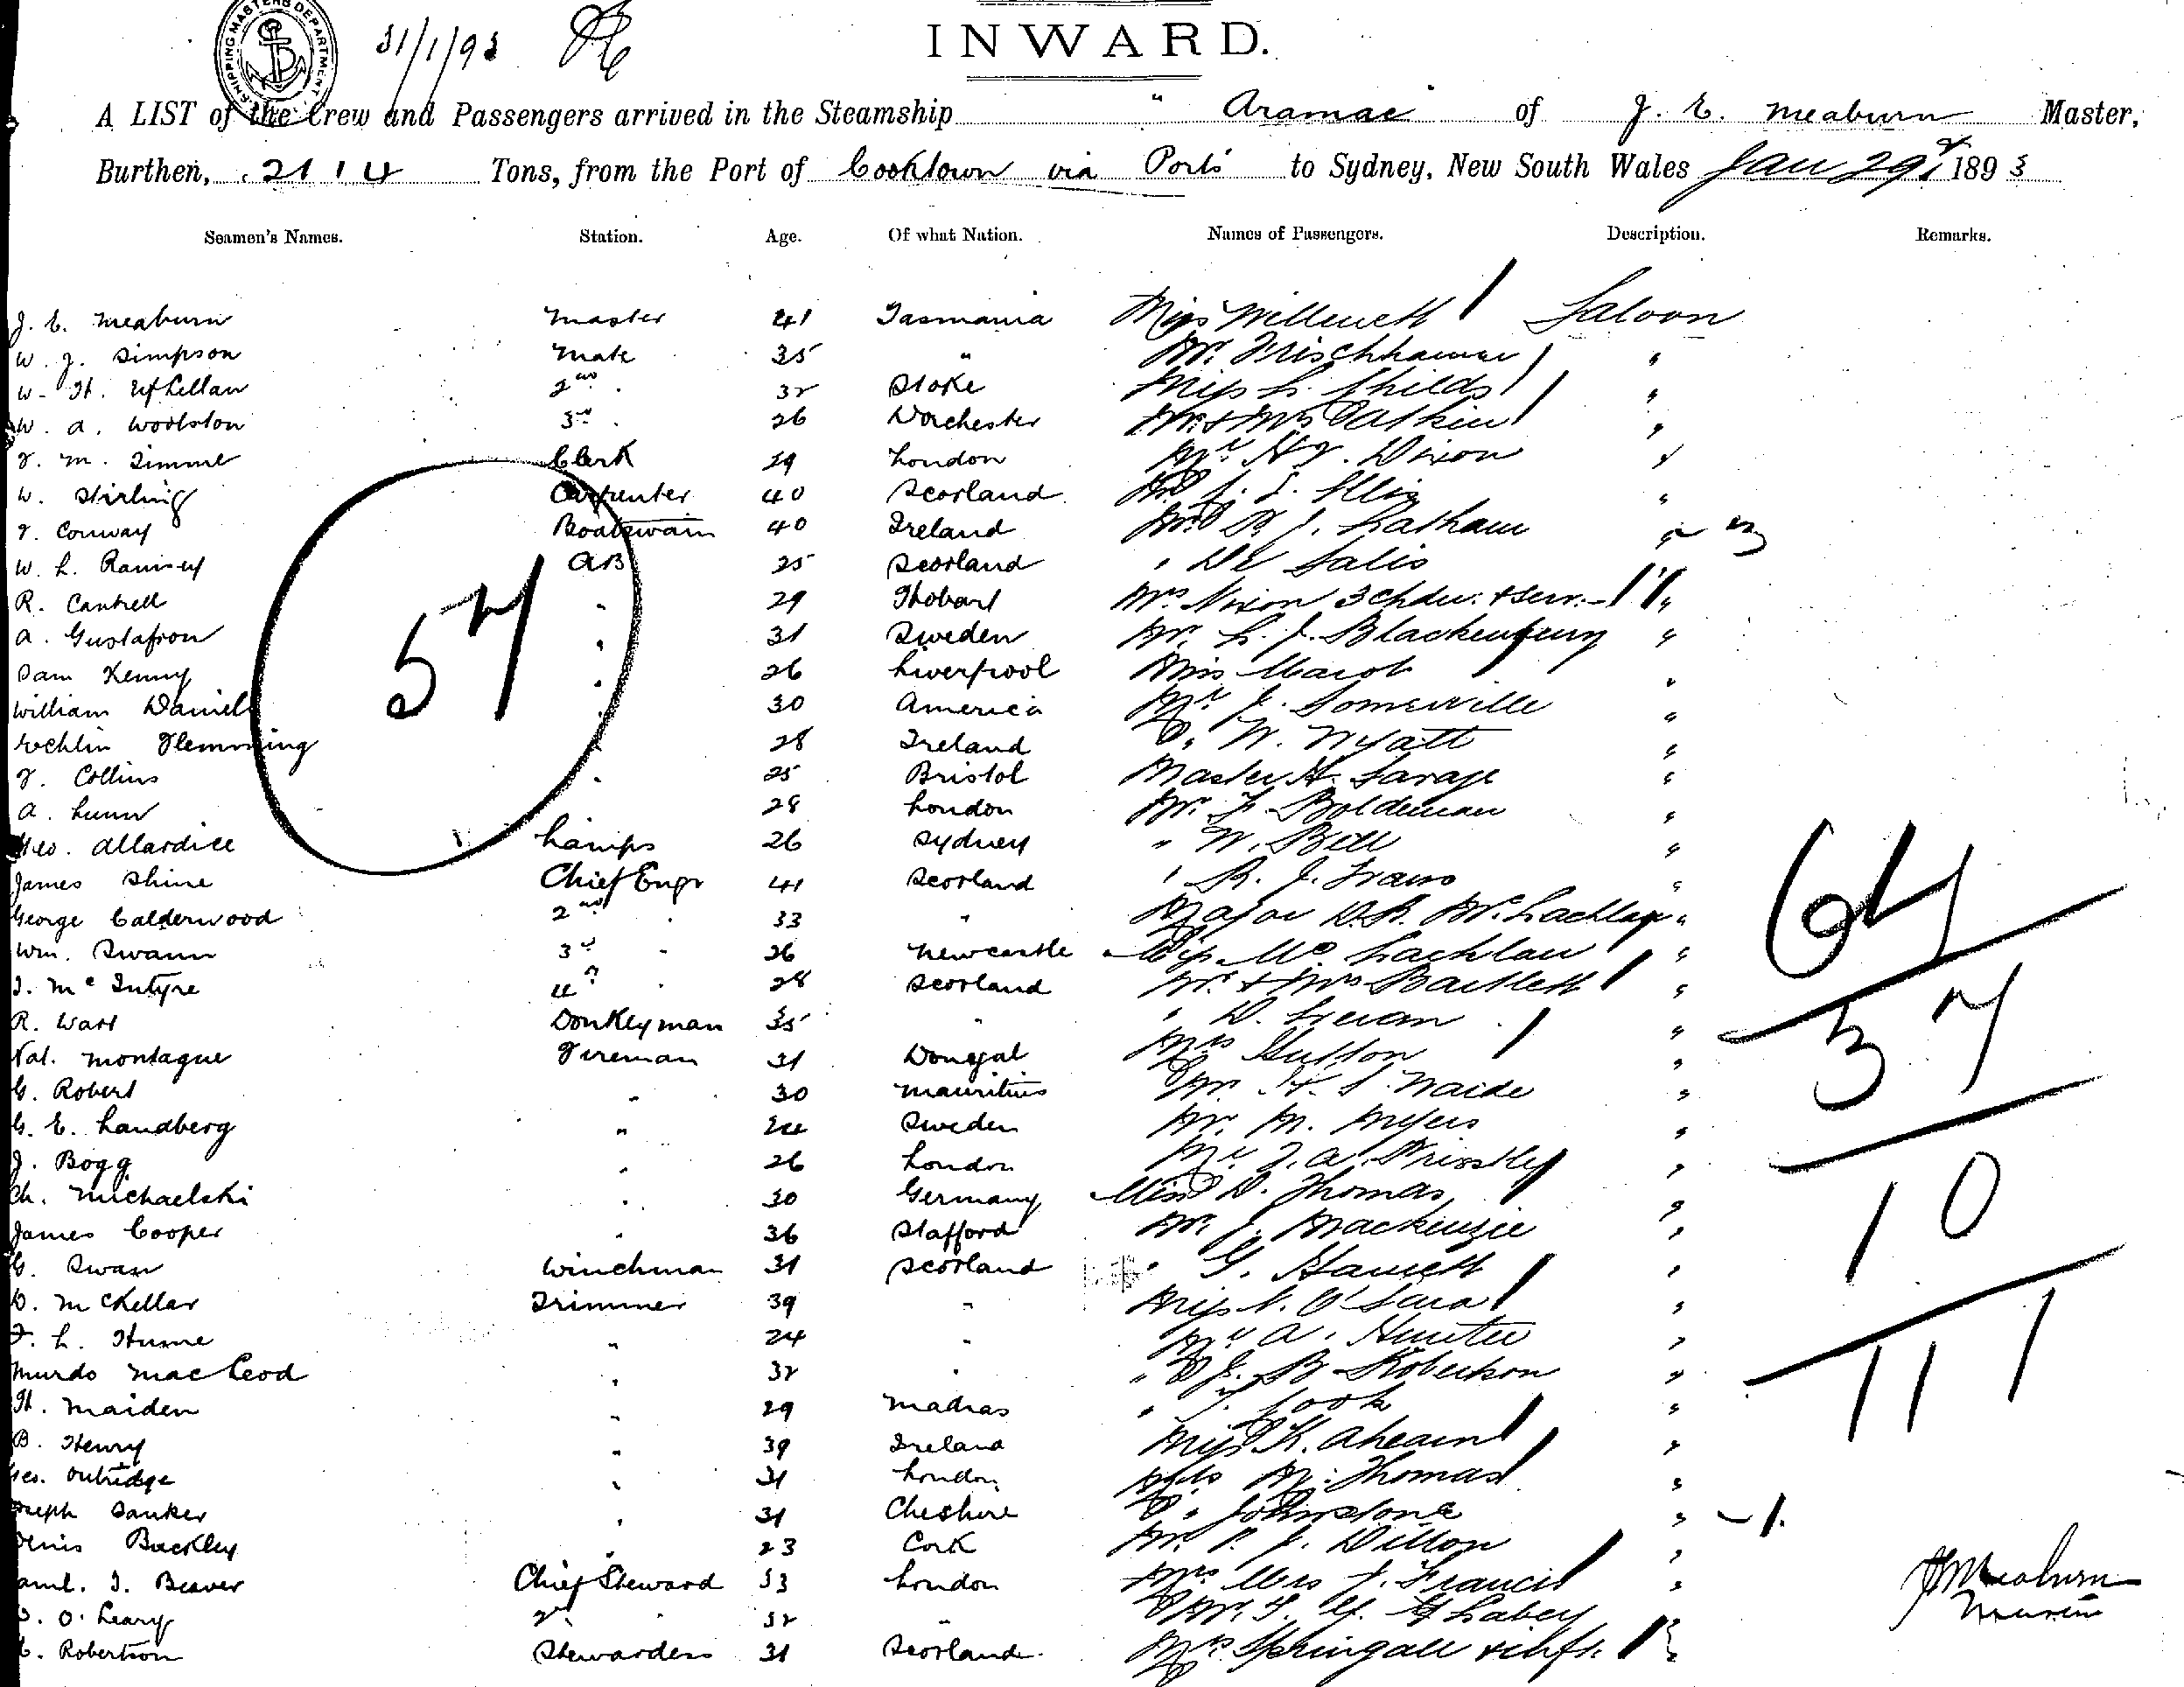 SHIPPING MASTERS DEPARTMENT
31/1/93
INWARD.
A LIST of the Crew and Passengers arrived in the Steamship "Aramac" of J. E. Meaburn Master,
Burthen, 2114 Tons, from the Port of Cooktown via Ports to Sydney, New South Wales Jan 29 1893
Seamen's Names. Station. Age. Of what Nation. Names of Passengers. Description. Remarks.
J. E. Meaburn Master 41 Tasmania Miss Saloon
W. J. Simpson Mate 35 " Mr. "
W. H. 2nd 32 Stoke Miss Shilds "
W. A. Woolston 3rd 26 Dorchester Mr & Mrs "
J. M. Clerk 29 London Mr Dixon "
W. Stirling Carpenter 40 Scotland Mr Ellis "
T. Conway Boatswain 40 Ireland Mr J. Latham "
W. L. Ramsey AB 25 Scotland " De Salis
R. Cantrell " 29 Hobart Mrs. Nixon 3 Chdn. + Serv. "
A. Gustafson " 31 Sweden Mr. L. J. "
Sam Kenny " 26 Liverpool Miss "
William Daniel " 30 America Mr J. Somerville "
57
Flemming " 28 Ireland " W. Wyatt "
T. Collins " 25 Bristol Master H. Savage "
A. Lunn " 28 London Mr. Boldeman "
Geo. Allardice Lamps 26 Sydney " W. Bell "
James Shine Chief Engr 41 Scotland " R. J. "
George Calderwood 2nd 33 " Major D. R. McLachlan "
Wm. Swann 3rd 26 Newcastle Miss McLachlan "
J. McIntyre 4th 28 Scotland Mr. & Mrs Bartlett "
R. Watt Donkeyman 35 " " D. "
Nat. Montague Fireman 31 Donegal Mrs Hutton "
G. Robert " 30 Mauritius Mr. H. S. "
G. E. Landberg " 24 Sweden Mr. M. Myers "
J. Bogg " 26 London Mr J. A. Priestley "
Ch. Michaelski " 30 Germany Miss D. Thomas "
James Cooper " 36 Stafford Mr. J. Mackenzie "
G. Swan Winchman 31 Scotland " G. "
D. McKellar Trimmer 39 " Miss N. O'Hara "
F. L. Hume " 24 " Mr A. Hunter "
Murdo MacLeod " 32 " " J. B. Robertson "
H. Maiden " 29 Madras " J. Cook "
B. Henry " 39 Ireland Miss K. Ahearn "
Geo. Outridge " 31 London M. Thomas "
Joseph Danker " 31 Cheshire " Johnstone "
Denis Buckley " 23 Cork Mr. P. J. Dillon "
Saml. J. Beaver Chief Steward 33 London Mrs J. Francis "
D. O'Leary 2nd " 32 " Mr. "
C. Robertson Stewardess 31 Scotland Mrs Springall & inft. "
64
37
10
111
J E Meaburn
Master